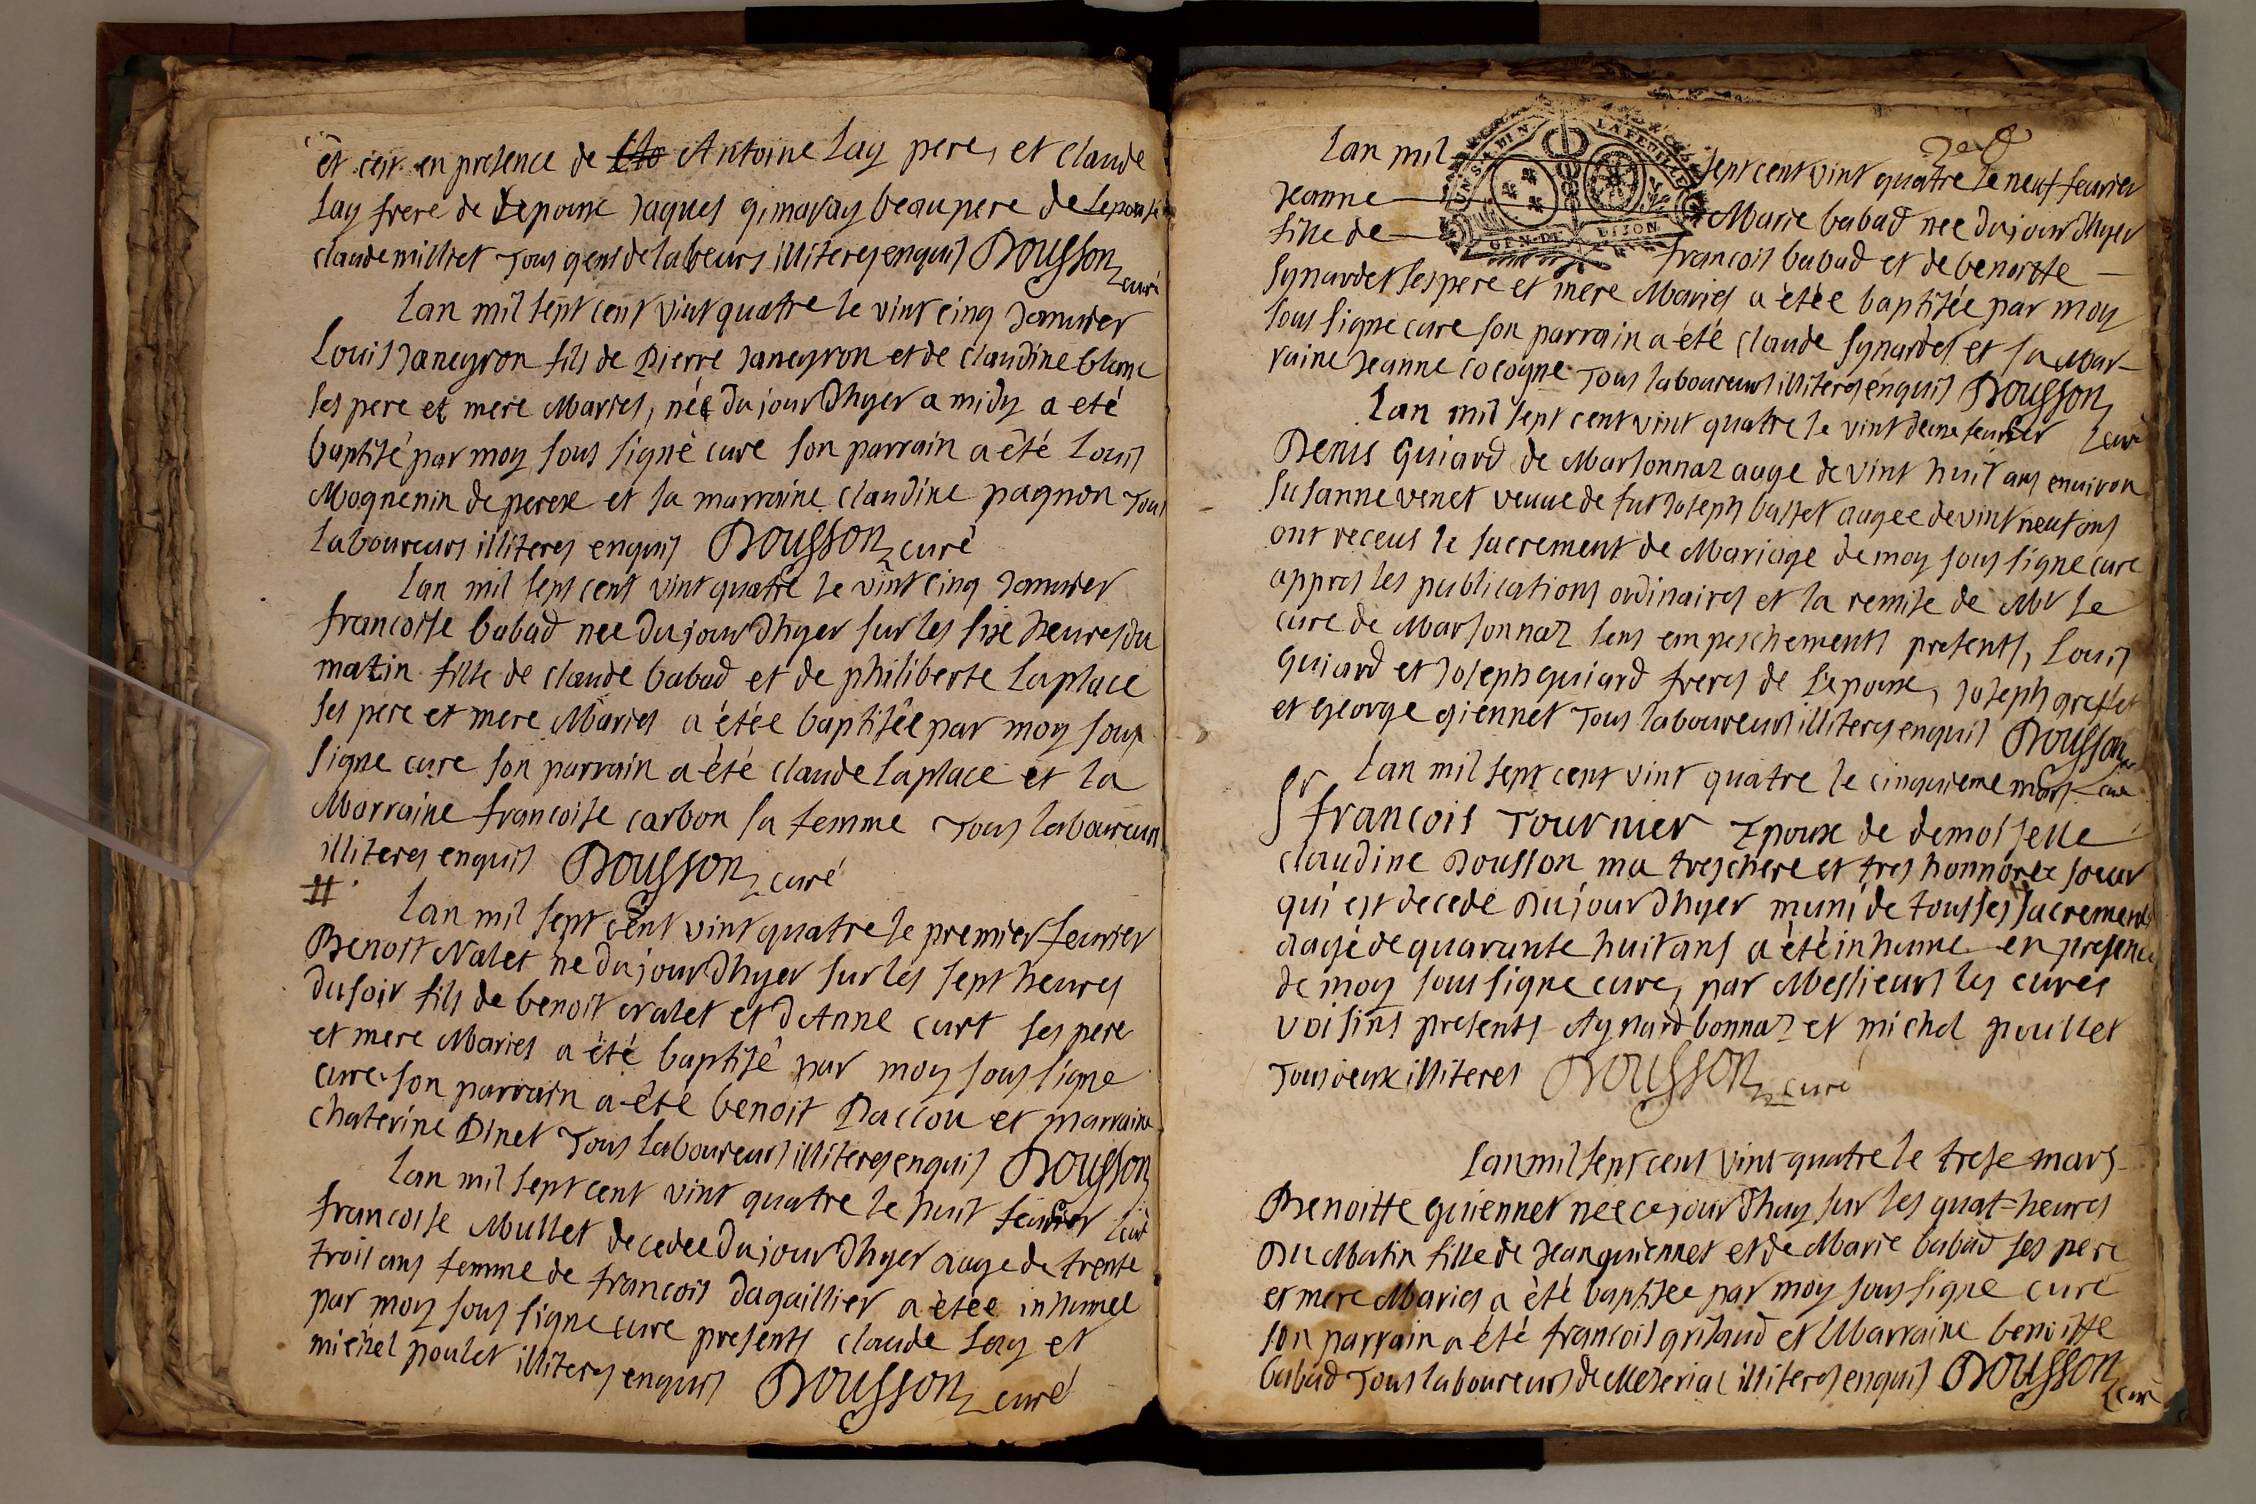 et cest en presence de Antoine Lay pere, et claude
Lay frere de depoux Jaques gimaray beaupere de Lepouse
claude milliet Tous gens de labeurs illiteres enquis Dousson curé
Lan mil sept cent vint quatre le vint cinq Janvier
Louis Janeyron fils de Pierre Janeyron et de claudine blanc
ses pere et mere Maries, né du jour Dhyer a midy a eté
baptisé par moy sous signé cure son parrain a été Louis
Mognenin de perex et sa marraine claudine pagnon Tous
laboureurs illiteres enquis Dousson curé
Lan mil sept cent vint quatre le vint cinq Janvier
francoise babad nee du jour Dhyer sur les six heures du
matin fille de claude babad et de philiberte Laplace
ses pere et mere Maries a étée baptisée par moy sous
signe cure son parrain a été claude Laplace et la
Marraine francoise carbon sa femme Tous laboureurs
illiteres enquis Dousson curé
Lan mil sept cent vint quatre le premier feurier
Benoit Nalet né du jour Dhyer sur les sept heures
du soir fils de benoit nalet et dAnne curt ses pere
et mere Maries a été baptisé par moy sous signe
cure son parrain a été benoit Daccou et marraine
chaterine Dinet Tous laboureurs illiteres enquis Dousson
Lan mil sept cent vint quatre le huit feurier curé
francoise Mullet decedee du jour Dhyer aage de trente
trois ans femme de francois dagaillier a étée inhumee
par moy sous signe cure presents claude Lay et
michel poulet illiteres enquis Dousson curé
Lan mil sept cent vint quatre le neuf feurier
Jeanne Marie babad nee du jour Dhyer
fille de francois babad et de benoitte
GEN. DE DIJON
synardet ses pere et mere Maries a étée baptisée par moy
sous signe cure son parrain a été claude synardet et sa Mar-
raine Jeanne cocogne Tous laboureurs illiteres enquis Dousson
Lan mil sept cent vint quatre le vint deux feurier curé
Denis Guiard de Marsonnaz aage de vint huit ans environ
Susanne venet veuve de fut Joseph basset aagee de vint neuf ans
ont receus le sacrement de Mariage de moy sous signe cure
appres les publications ordinaires et la remise de Mr le
cure de Marsonnaz sens empeschements presents, Louis
Guiard et Joseph guiard freres de Lepoux, Joseph greffet
et George giennet Tous laboureurs illiteres enquis Dousson
Lan mil sept cent vint quatre le cinquieme mars curé
Sr francois Tournier Epoux de demoiselle
claudine Dousson ma treschere et tres honnorée soeur
qui est decede du jour Dhyer muni de tous ses sacrements
aagé de quarante huit ans a été inhumé en presence
de moy sous signe cure, par Messieurs les cures
voisins presents Aynard bonnaz et michel poullet
Tous deux illiteres Dousson curé
Lan mil sept cent vint quatre le trese mars
Benoitte guiennet nee ce jour Dhuy sur les quat-heures
Du Matin fille de Jean guiennet et de Marie babad ses pere
et mere Maries a été baptisee par moy sous signe curé
son parrain a été francois grisaud et Marraine benoitte
babad Tous laboureurs de Meseriac illiteres enquis Dousson curé